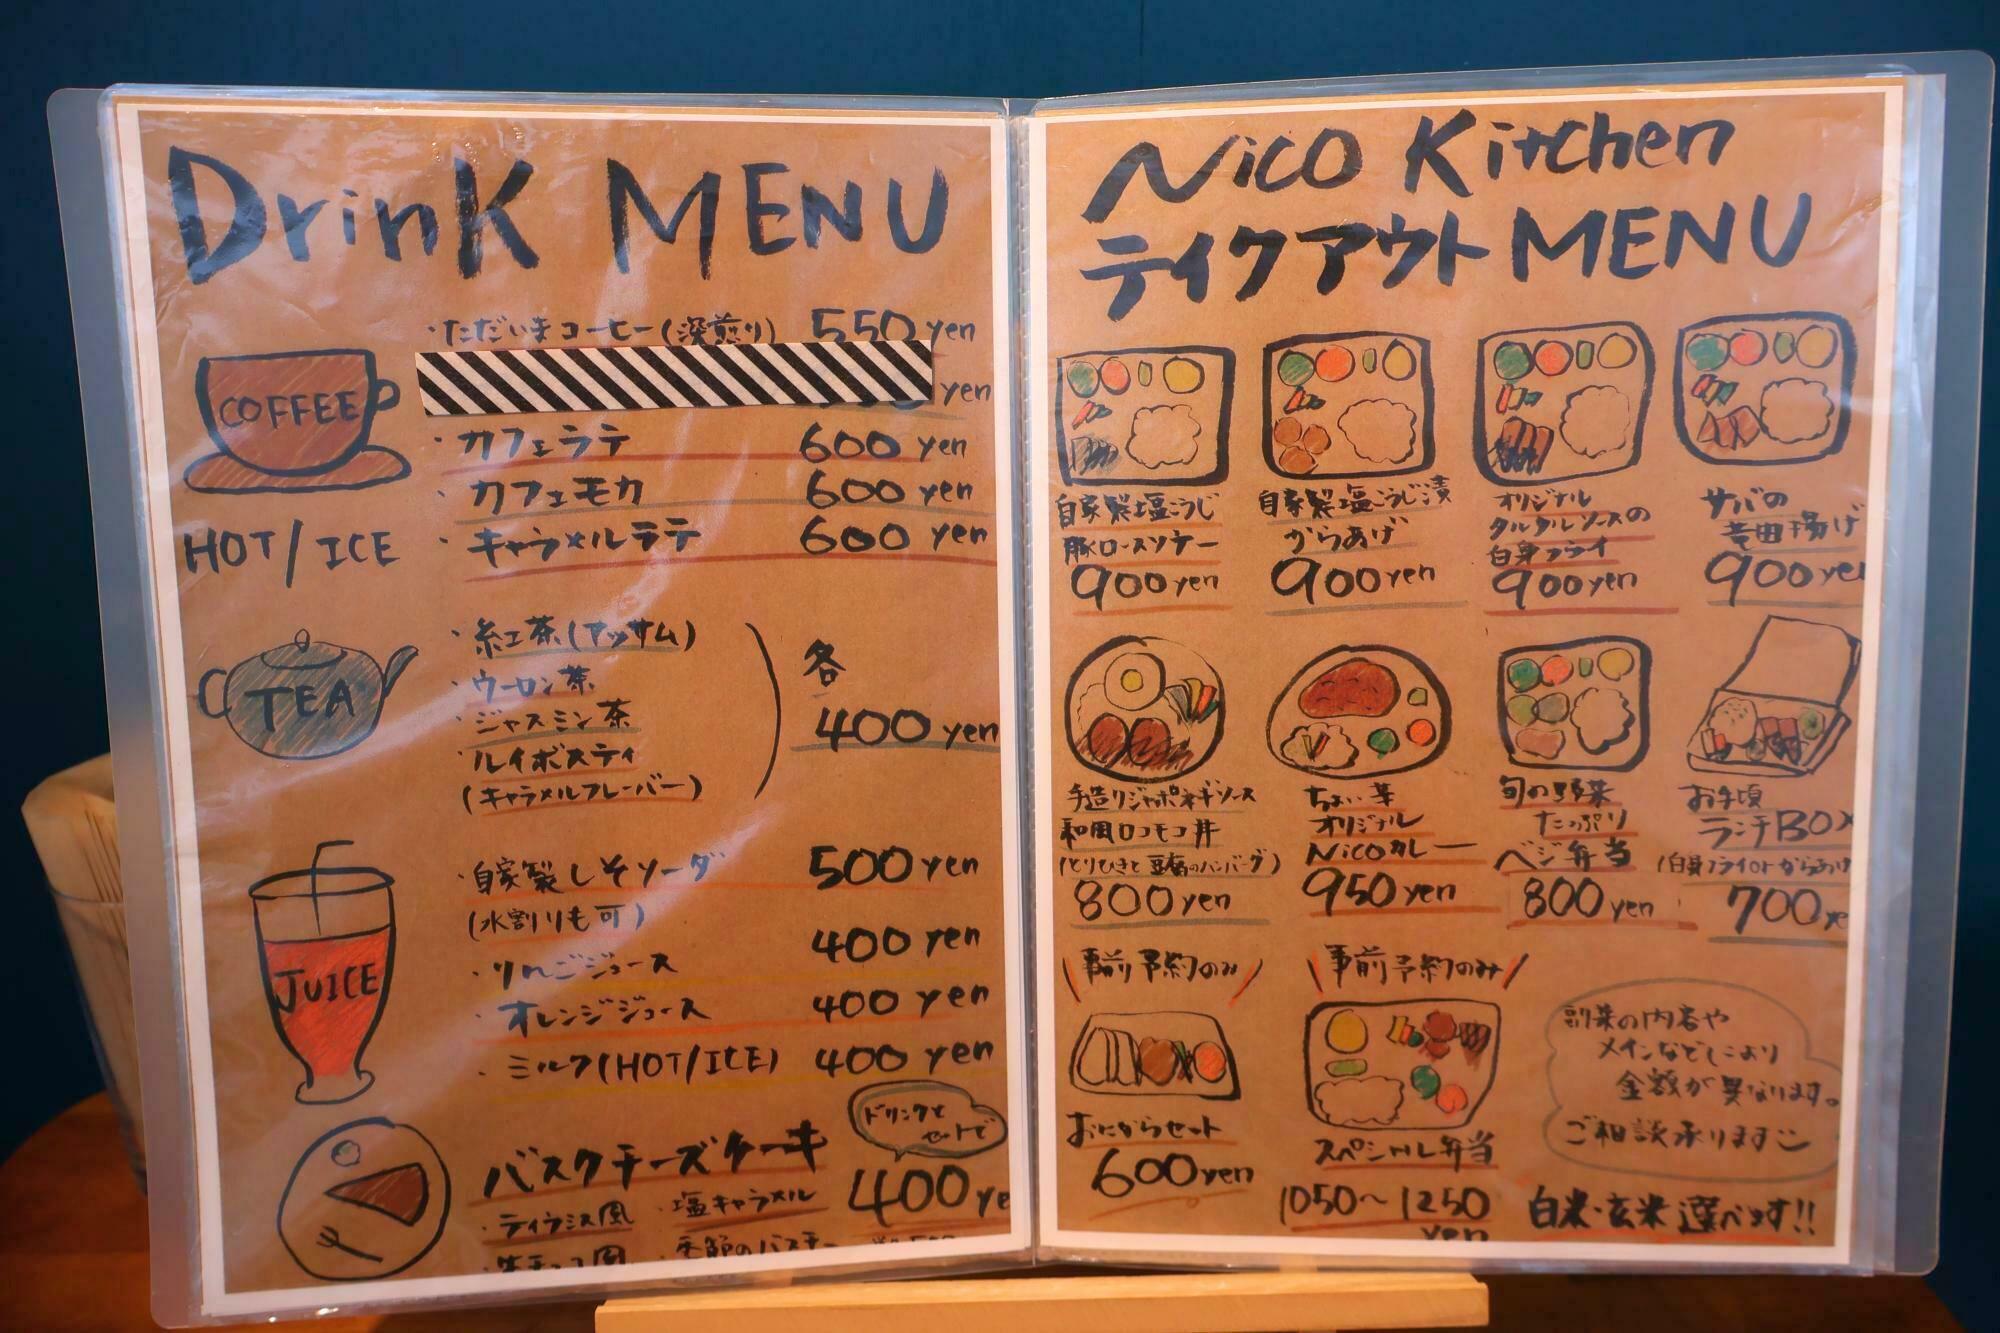 Drink MENU
・ただいまコーヒー(深煎り) 550 yen
yen
COFFEE
・カフェラテ 600 yen
・カフェモカ 600 yen
HOT/ICE
・キャラメルラテ 600 yen
TEA
・紅茶(アッサム)
・ウーロン茶
・ジャスミン茶
・ルイボスティ
(キャラメルフレーバー)
各
400 yen
JUICE
・自家製しそソーダ 500 yen
(水割りも可)
・りんごジュース 400 yen
・オレンジジュース 400 yen
・ミルク(HOT/ICE) 400 yen
バスクチーズケーキ
ドリンクと
セットで
400 ye
・ティラミス風 ・塩キャラメル
・生チョコ風 ・季節のバスチー
Nico Kitchen
テイクアウトMENU
自家製塩こうじ
豚ロースソテー
900 yen
自家製塩こうじ漬
からあげ
900 yen
オリジナル
タルタルソースの
白身フライ
900 yen
サバの
竜田揚げ
900 ye
手造りジャポネギソース
和風ロコモコ丼
(とりひきと豆腐のハンバーグ)
800 yen
ちょい辛
オリジナル
Nicoカレー
950 yen
旬の野菜
たっぷり
ベジ弁当
800 yen
お手頃
ランチBOX
(白身フライorからあげ
700 ye
\事前予約のみ/
おにからセット
600 yen
\事前予約のみ/
スペシャル弁当
1050〜1250
yen
副菜の内容や
メインなどにより
金額が異なります。
ご相談承ります
白米・玄米 選べます!!